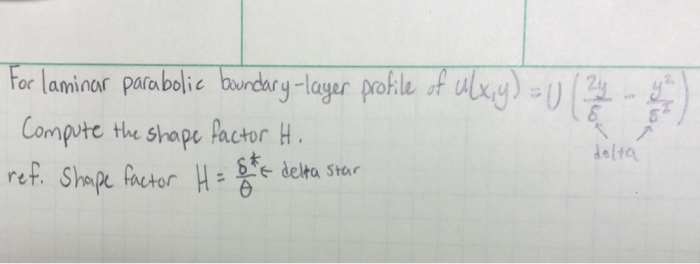 For laminar parabolic boundary-layer profile of u(x,y) = U (2y/δ - y²/δ²)
delta
Compute the shape factor H.
ref. Shape factor H = δ*/θ ← delta star